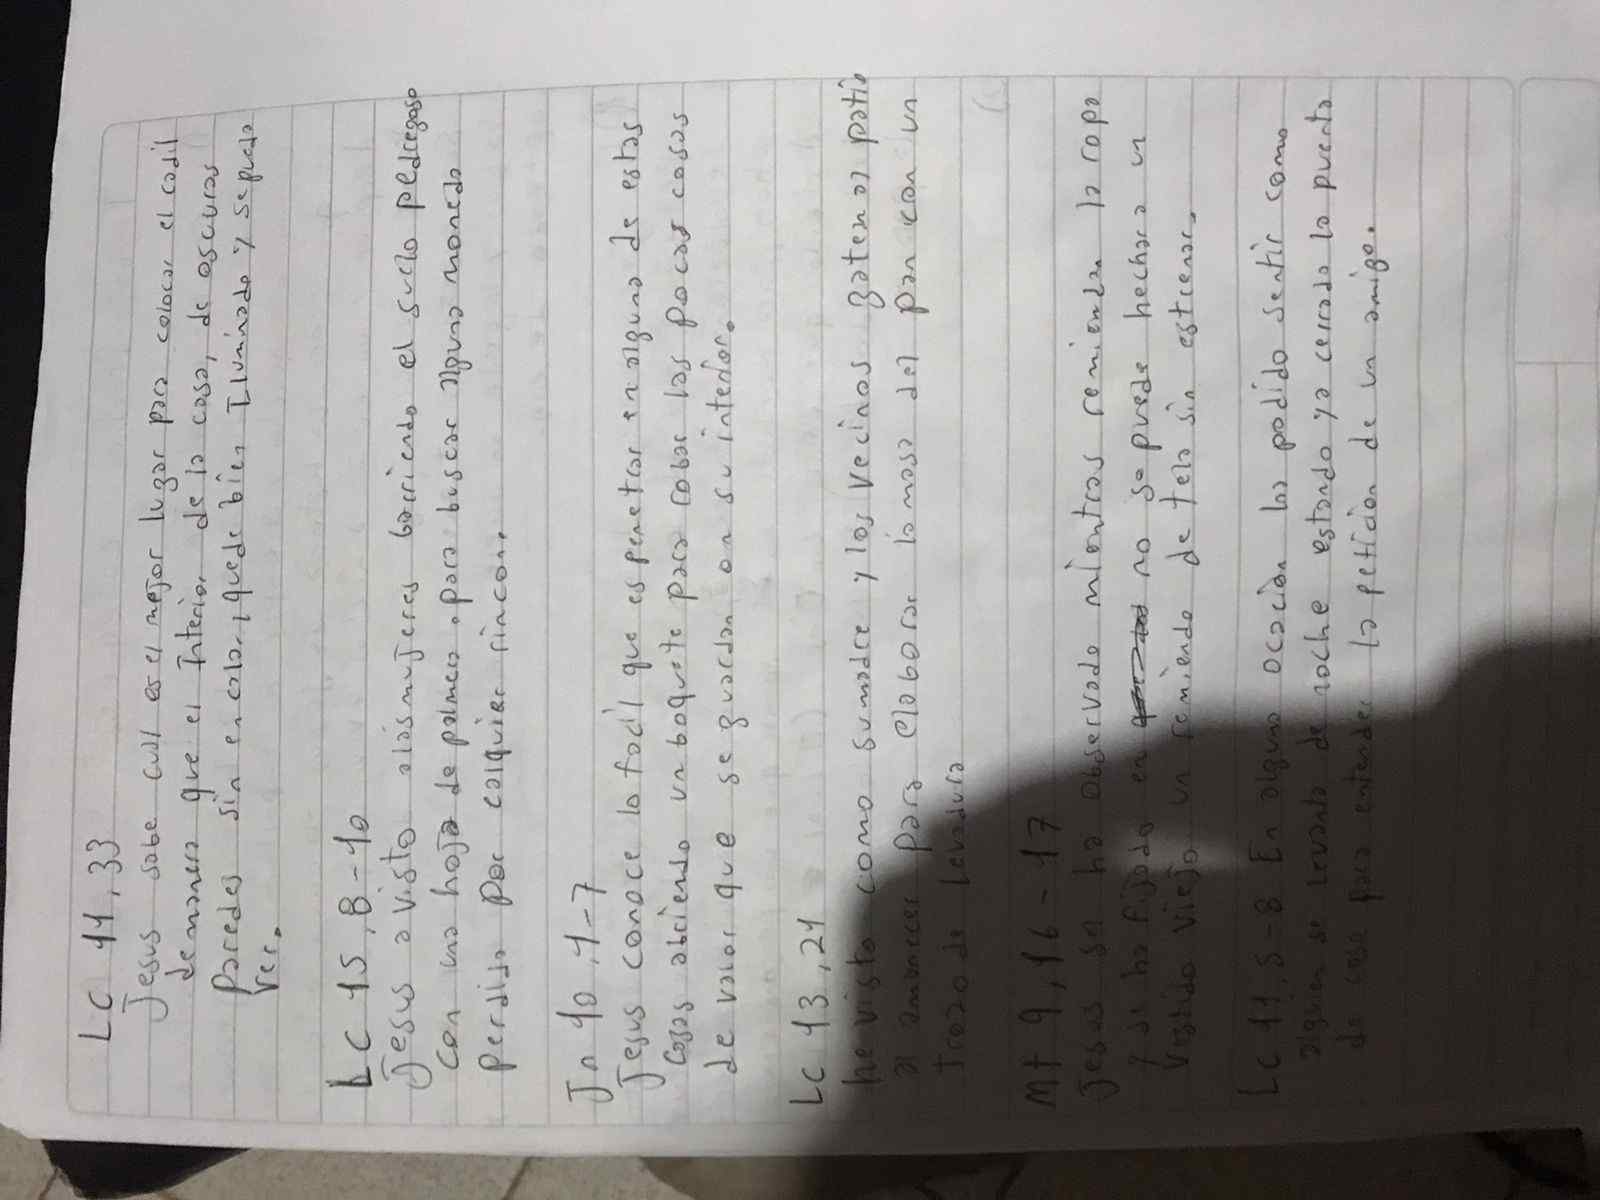 Lc 11,33
Jesus sabe cual es el mejor lugar para colocar el cadil
de manera que el Interior de la casa, de oscuras
paredes sin encalar, quede bien Iluminado y se pueda
ver.
Lc 15,8-10
Jesus a visto a las mujeres barriendo el suelo pedregoso
con una hoja de palmera, para buscar alguna moneda
perdida por calquier rincon.
Jn 10,1-7
Jesus conoce lo facil que es penetrar en alguna de estas
casas abriendo un boquete para robar las pocas cosas
de valor que se guardan en su interior.
Lc 13,21
he visto como su madre y los vecinos salen al patio
al amanecer para elaborar la masa del pan con un
trozo de levadura
Mt 9,16-17
Jesus se ha observado mientras remiendan la ropa
y se ha fijado en no se puede hechar a un
vestido viejo un remiendo de tela sin estrenar.
Lc 11,5-8 En alguna ocación ha podido sentir como
alguien se levanta de noche estando ya cerrada la puerta
de casa para entender la petición de un amigo.